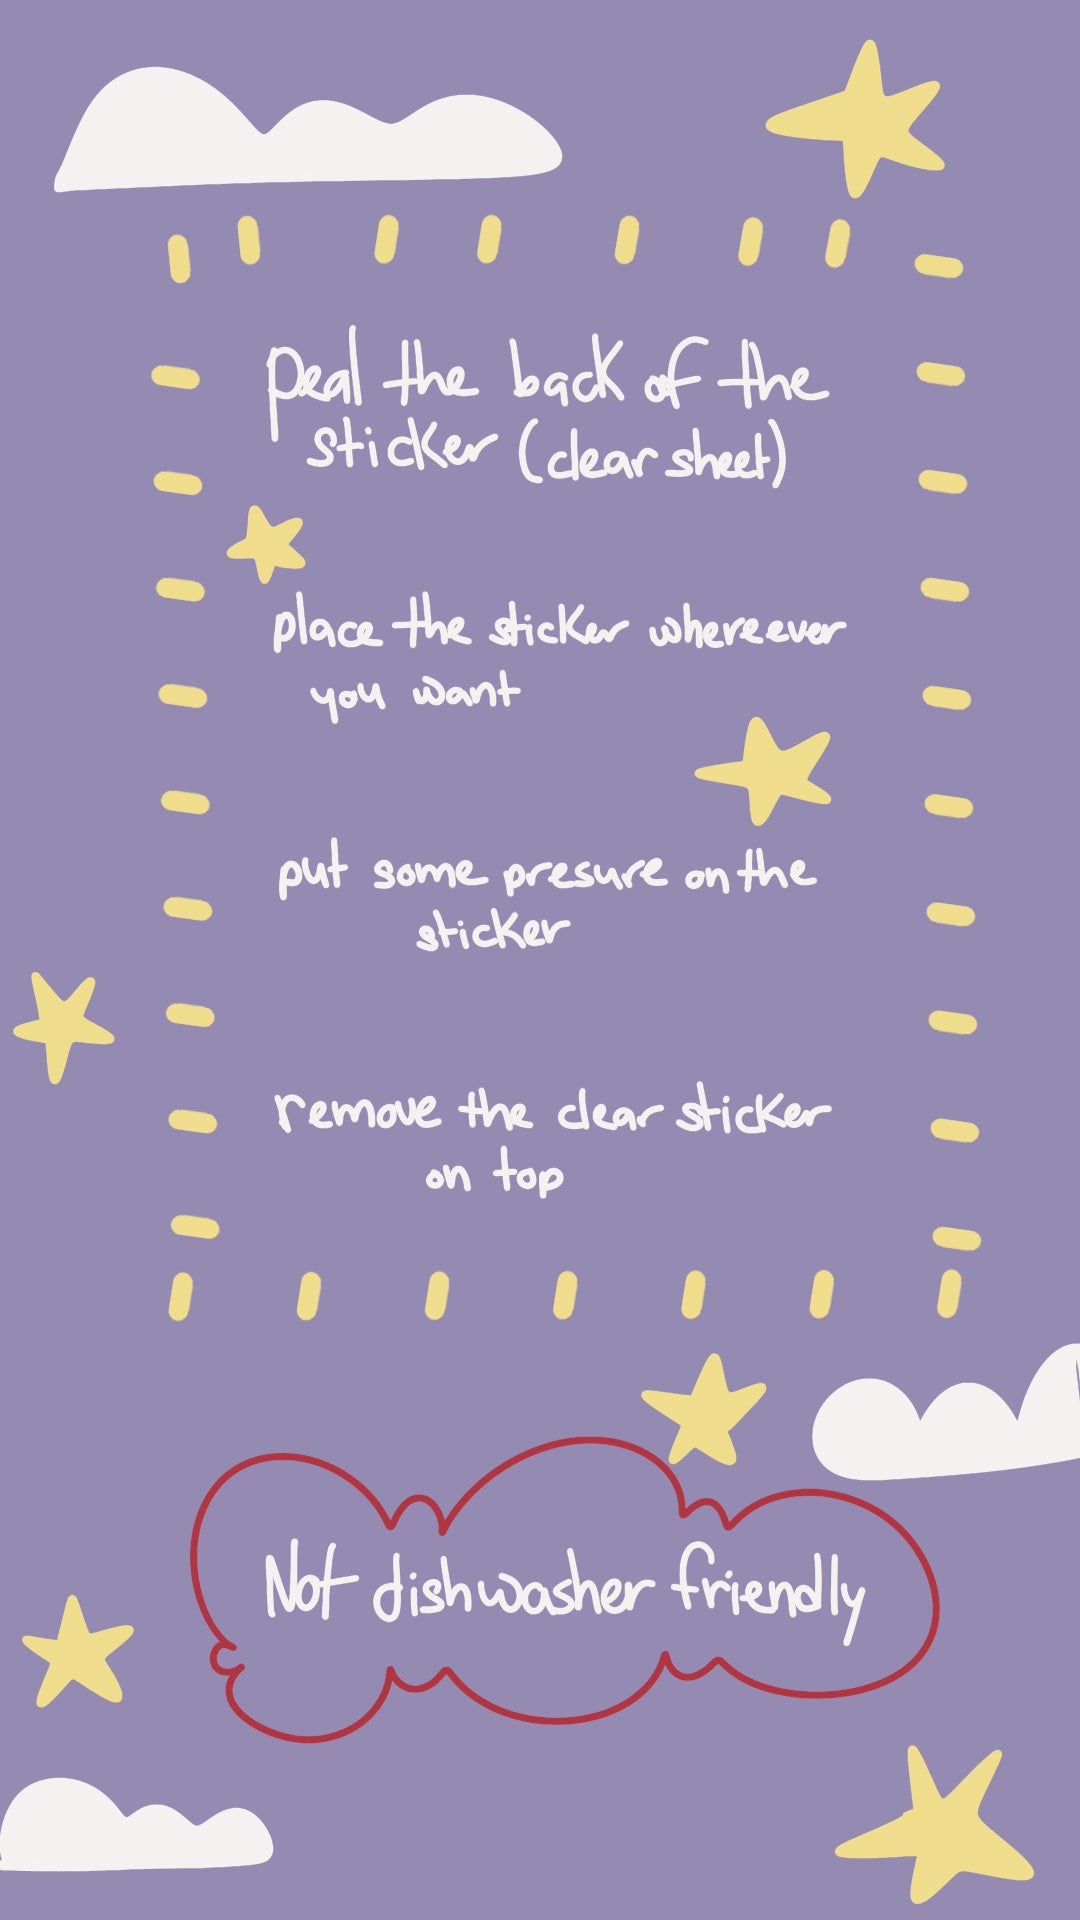 peal the back of the
sticker (clear sheet)
place the sticker whereever
you want
put some presure on the
sticker
remove the clear sticker
on top
Not dishwasher friendly